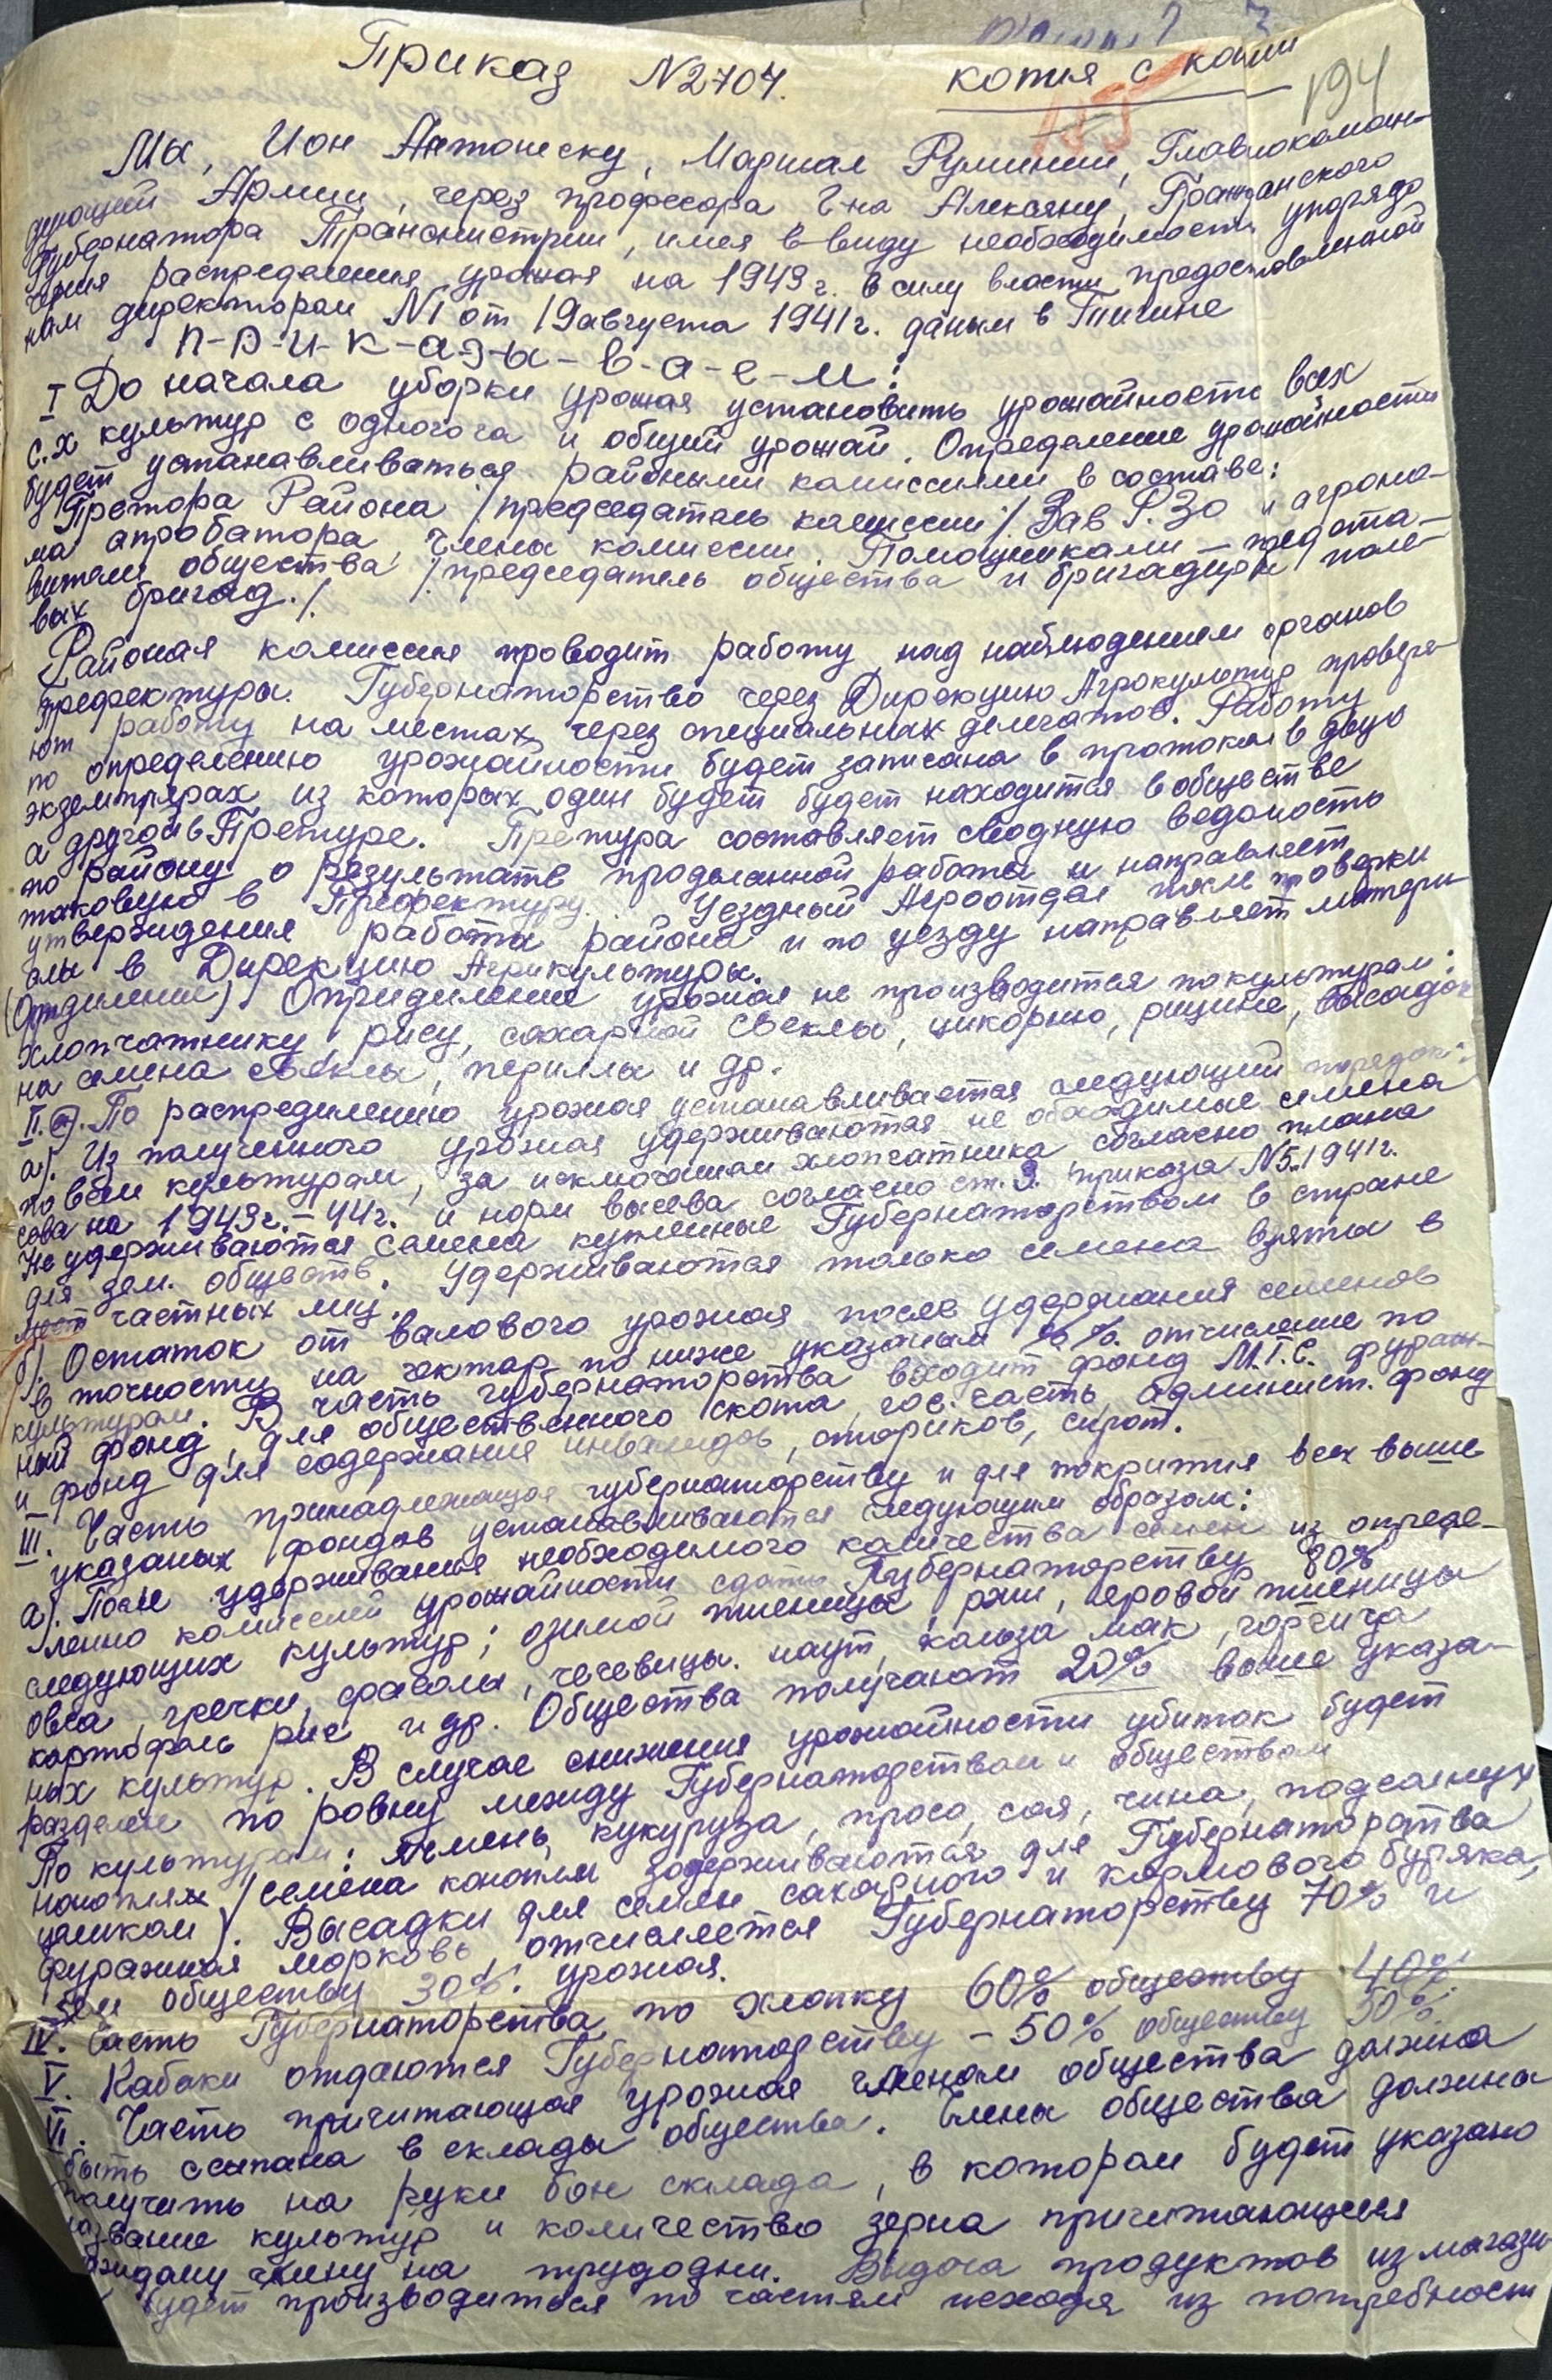 194
Приказ N2704.
копия с копии
Мы, Ион Антонеску, Маршал Румынии, Главнокоман-
дующий Армии, через професора Г-на Алексяну, Гражданского
Губернатора Транснистрии, имея в виду необходимость упорядо
чения распределения урожая на 1943 г. в силу власти предоставленной
нам директорам N1 от 19 августа 1941 г. даным в Тигине
П-Р-И-К-а-з-ы-в-а-е-м:
I До начала уборки урожая установить урожайность всех
с.х культур с одного га и общий урожай. Определение урожайности
будет устанавливаться районными комиссиями в составе:
Претора Района /председатель комиссии/ Зав Р.Зо и агроно-
ма апробатора, члены комиссии. Помощниками – предста-
вители общества /председатель общества и бригадиры поле-
вых бригад./
Районая комиссия проводит работу над наблюдением органов
префектуры. Губернаторство через Дирекцию Агрокультур проверя-
ют работу на местах через специальных делегатов. Работу
по определению урожайности будет записана в протокол в двух
экземплярах из которых один будет будет находится в обществе
а другой в Претуре. Претура составляет сводную ведомость
по району о результате проделанной работы и направляет
таковую в Префектуру. Уездный Агроотдел после проверки
утверждения работы района и по уезду направляет матери
алы в Дирекцию Агрикультуры.
(Отделение) Определение урожая не производится по культурам:
хлопчатнику рису, сахарной свеклы, цикорию, рицине, высадок
на семена свеклы, периллы и др.
II. а). По распределению урожая устанавливается следующий порядок:
а). Из полученного урожая удерживаются не обходимые семена
по всем культурам, за исключением хлопчатника согласно плана
сева на 1943 г. – 44 г. и норм высева согласно ст. 3. приказа N5. 1941 г.
Не удерживаются семена купленные Губернаторством в стране
для зем. обществ. Удерживаются только семена взяты в
частных лиц.
б). Остаток от валового урожая после удержания семенов
в точности на гектар по ниже указаным %%. отчисление по
культурам. В часть губернаторства входит фонд М.Т.С. фураж-
ный фонд, для общественного скота, гос. часть, админист. фонд
и фонд для содержания инвалидов, стариков, сирот.
III. Часть принадлежащая губернаторству и для покрытия всех выше
указаных фондов устанавливаются следующим образом:
а). После удерживания необходимого количества семен из опреде-
ленно комиссией урожайности сдать Губернаторству 80%
следующих культур; озимой пшеницы, ржи, яровой пшеницы
овса, гречки, фасоли, чечевицы. наут, кользa мак, горчица
картофель рис и др. Общества получают 20% выше указа-
ных культур. В случае снижения урожайности убиток будет
разделен по ровну между Губернаторством и обществом
По культурам: ячмень, кукуруза, просо, соя, чина, подсолнух
конопля /семена конопли задерживаются для Губернаторства
целиком/. Высадки для семян сахарного и кормового буряка,
фуражная морковь, отчисляется Губернаторству 70% и
обществу 30%. урожая.
IV. Часть Губернаторства по хлопку 60% обществу 40%
V. Кабаки отдаются Губернаторству – 50% обществу 50%.
VI. Часть причитающая урожая членам общества должна
быть ссыпана в склады общества. Члены общества должны
получить на руки бон склада, в котором будет указано
название культур и количество зерна причитающееся
каждому члену на трудодни. Выдача продуктов из магази-
будет производиться по частям исходя из потребност